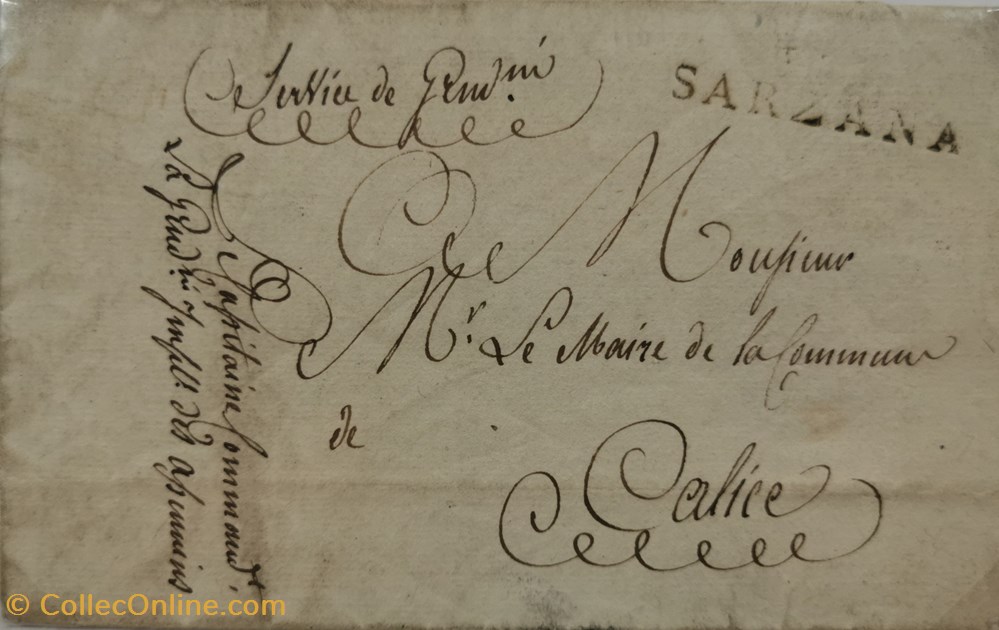 Service de Gend.rie
SARZANA
Monsieur
Mr. Le Maire de la Commune
de
Calice
Le Capitaine Command.t
La Gend.rie Imp.le des Apennins
© CollecOnline.com